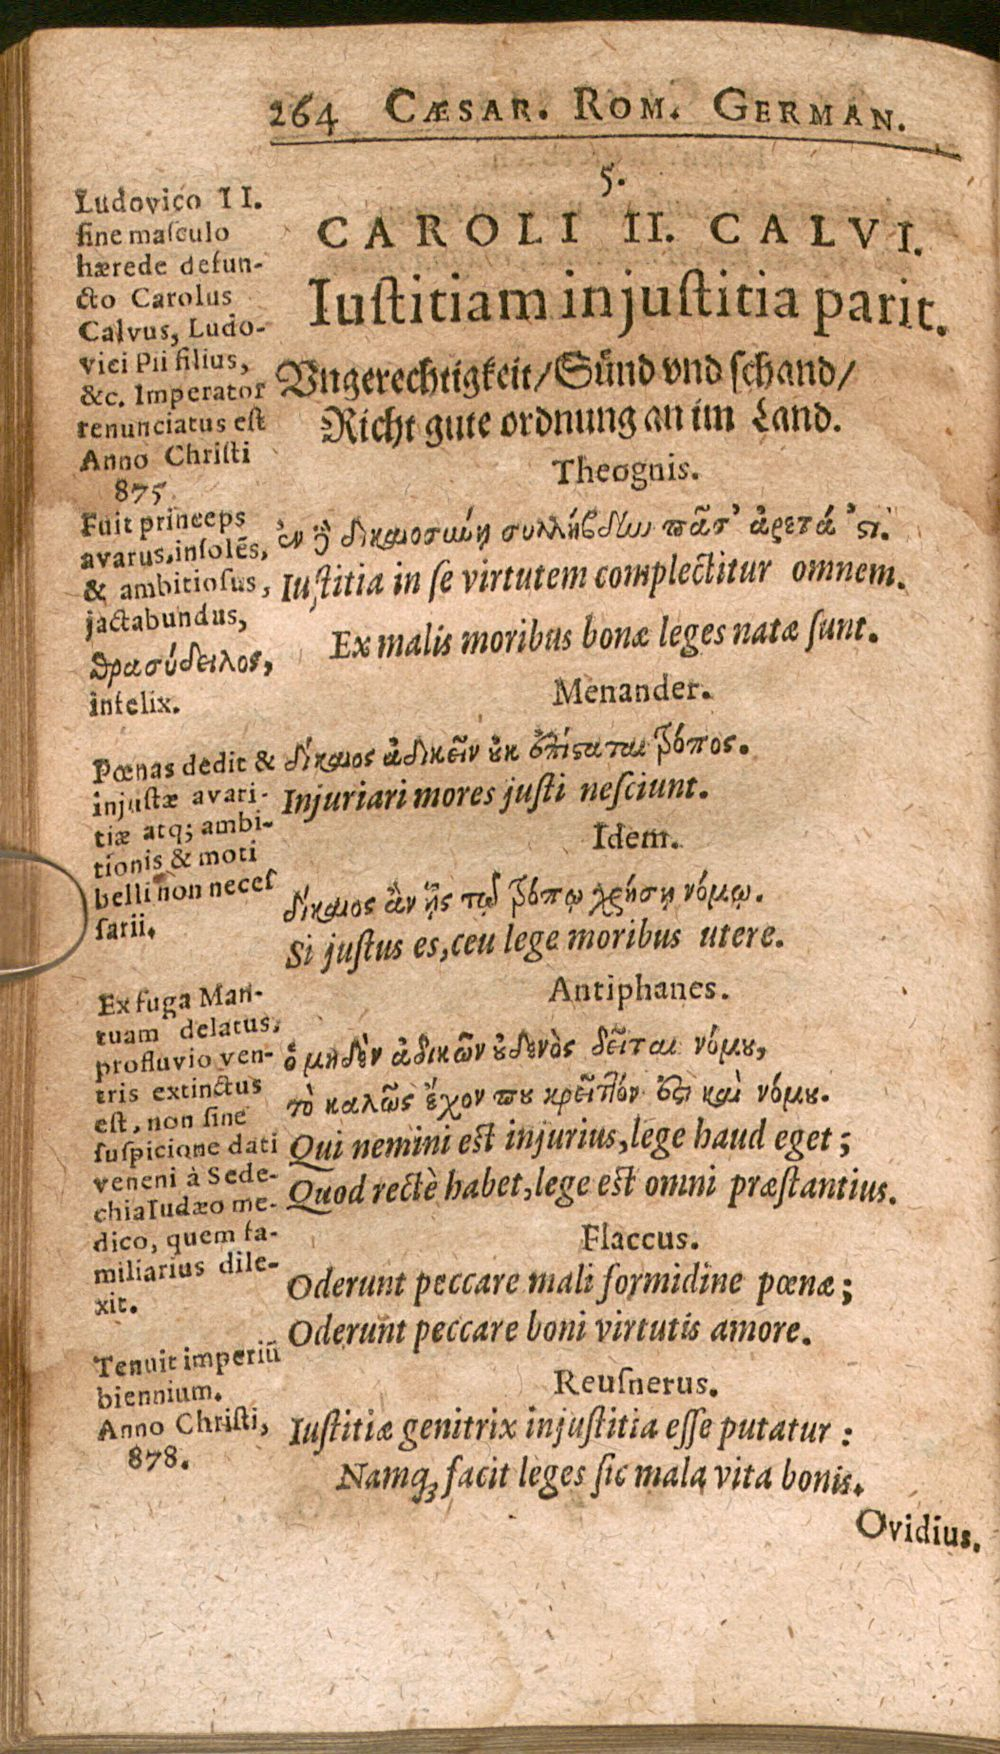 264 CÆSAR. ROM. GERMAN.
5.
CAROLI II. CALVI.
Iuſtitiam injuſtitia parit.
Vngerechtigkeit/Sünd vnd ſchand/
Richt gute ordnung an im Land.
Theognis.
ἐν ȣ̓ δικαιοσύνῃ συλλήβδην πᾶσ' ἀρετά 'ϛι.
Iuſtitia in ſe virtutem complectitur omnem.
Ex malis moribus bonæ leges natæ ſunt.
Menander.
δίκαιος ἀδικεῖν ȣκ ἐπίϛαται τρόπος.
Injuriari mores juſti neſciunt.
Idem.
δίκαιος ἂν ᾖς τῷ τρόπῳ χρήσῃ νόμῳ.
Si juſtus es, ceu lege moribus utere.
Antiphanes.
ὁ μηδὲν ἀδικῶν ȣδενὸς δεῖται νόμȣ,
τὸ καλῶς ἔχον πȣ κρεῖττόν ἐϛι καὶ νόμȣ.
Qui nemini eſt injurius, lege haud eget;
Quod rectè habet, lege eſt omni præſtantius.
Flaccus.
Oderunt peccare mali formidine pœnæ;
Oderunt peccare boni virtutis amore.
Reuſnerus.
Iuſtitiæ genitrix injuſtitia eſſe putatur:
Namq; facit leges ſic mala vita bonis.
Ovidius.
Ludovico II.
ſine maſculo
hærede defun-
cto Carolus
Calvus, Ludo-
vici Pii filius,
&c. Imperator
renunciatus eſt
Anno Chriſti
875
Fuit princeps
avarus, inſolēs,
& ambitioſus,
jactabundus,
θρασύδειλος,
infelix.
Pœnas dedit &
injuſtæ avari-
tiæ atq; ambi-
tionis & moti
belli non neceſ
ſarii.
Ex fuga Man-
tuam delatus,
profluvio ven-
tris extinctus
eſt, non ſine
ſuſpicione dati
veneni à Sede-
chia Iudæo me-
dico, quem fa-
miliarius dile-
xit.
Tenuit imperiū
biennium.
Anno Chriſti,
878.